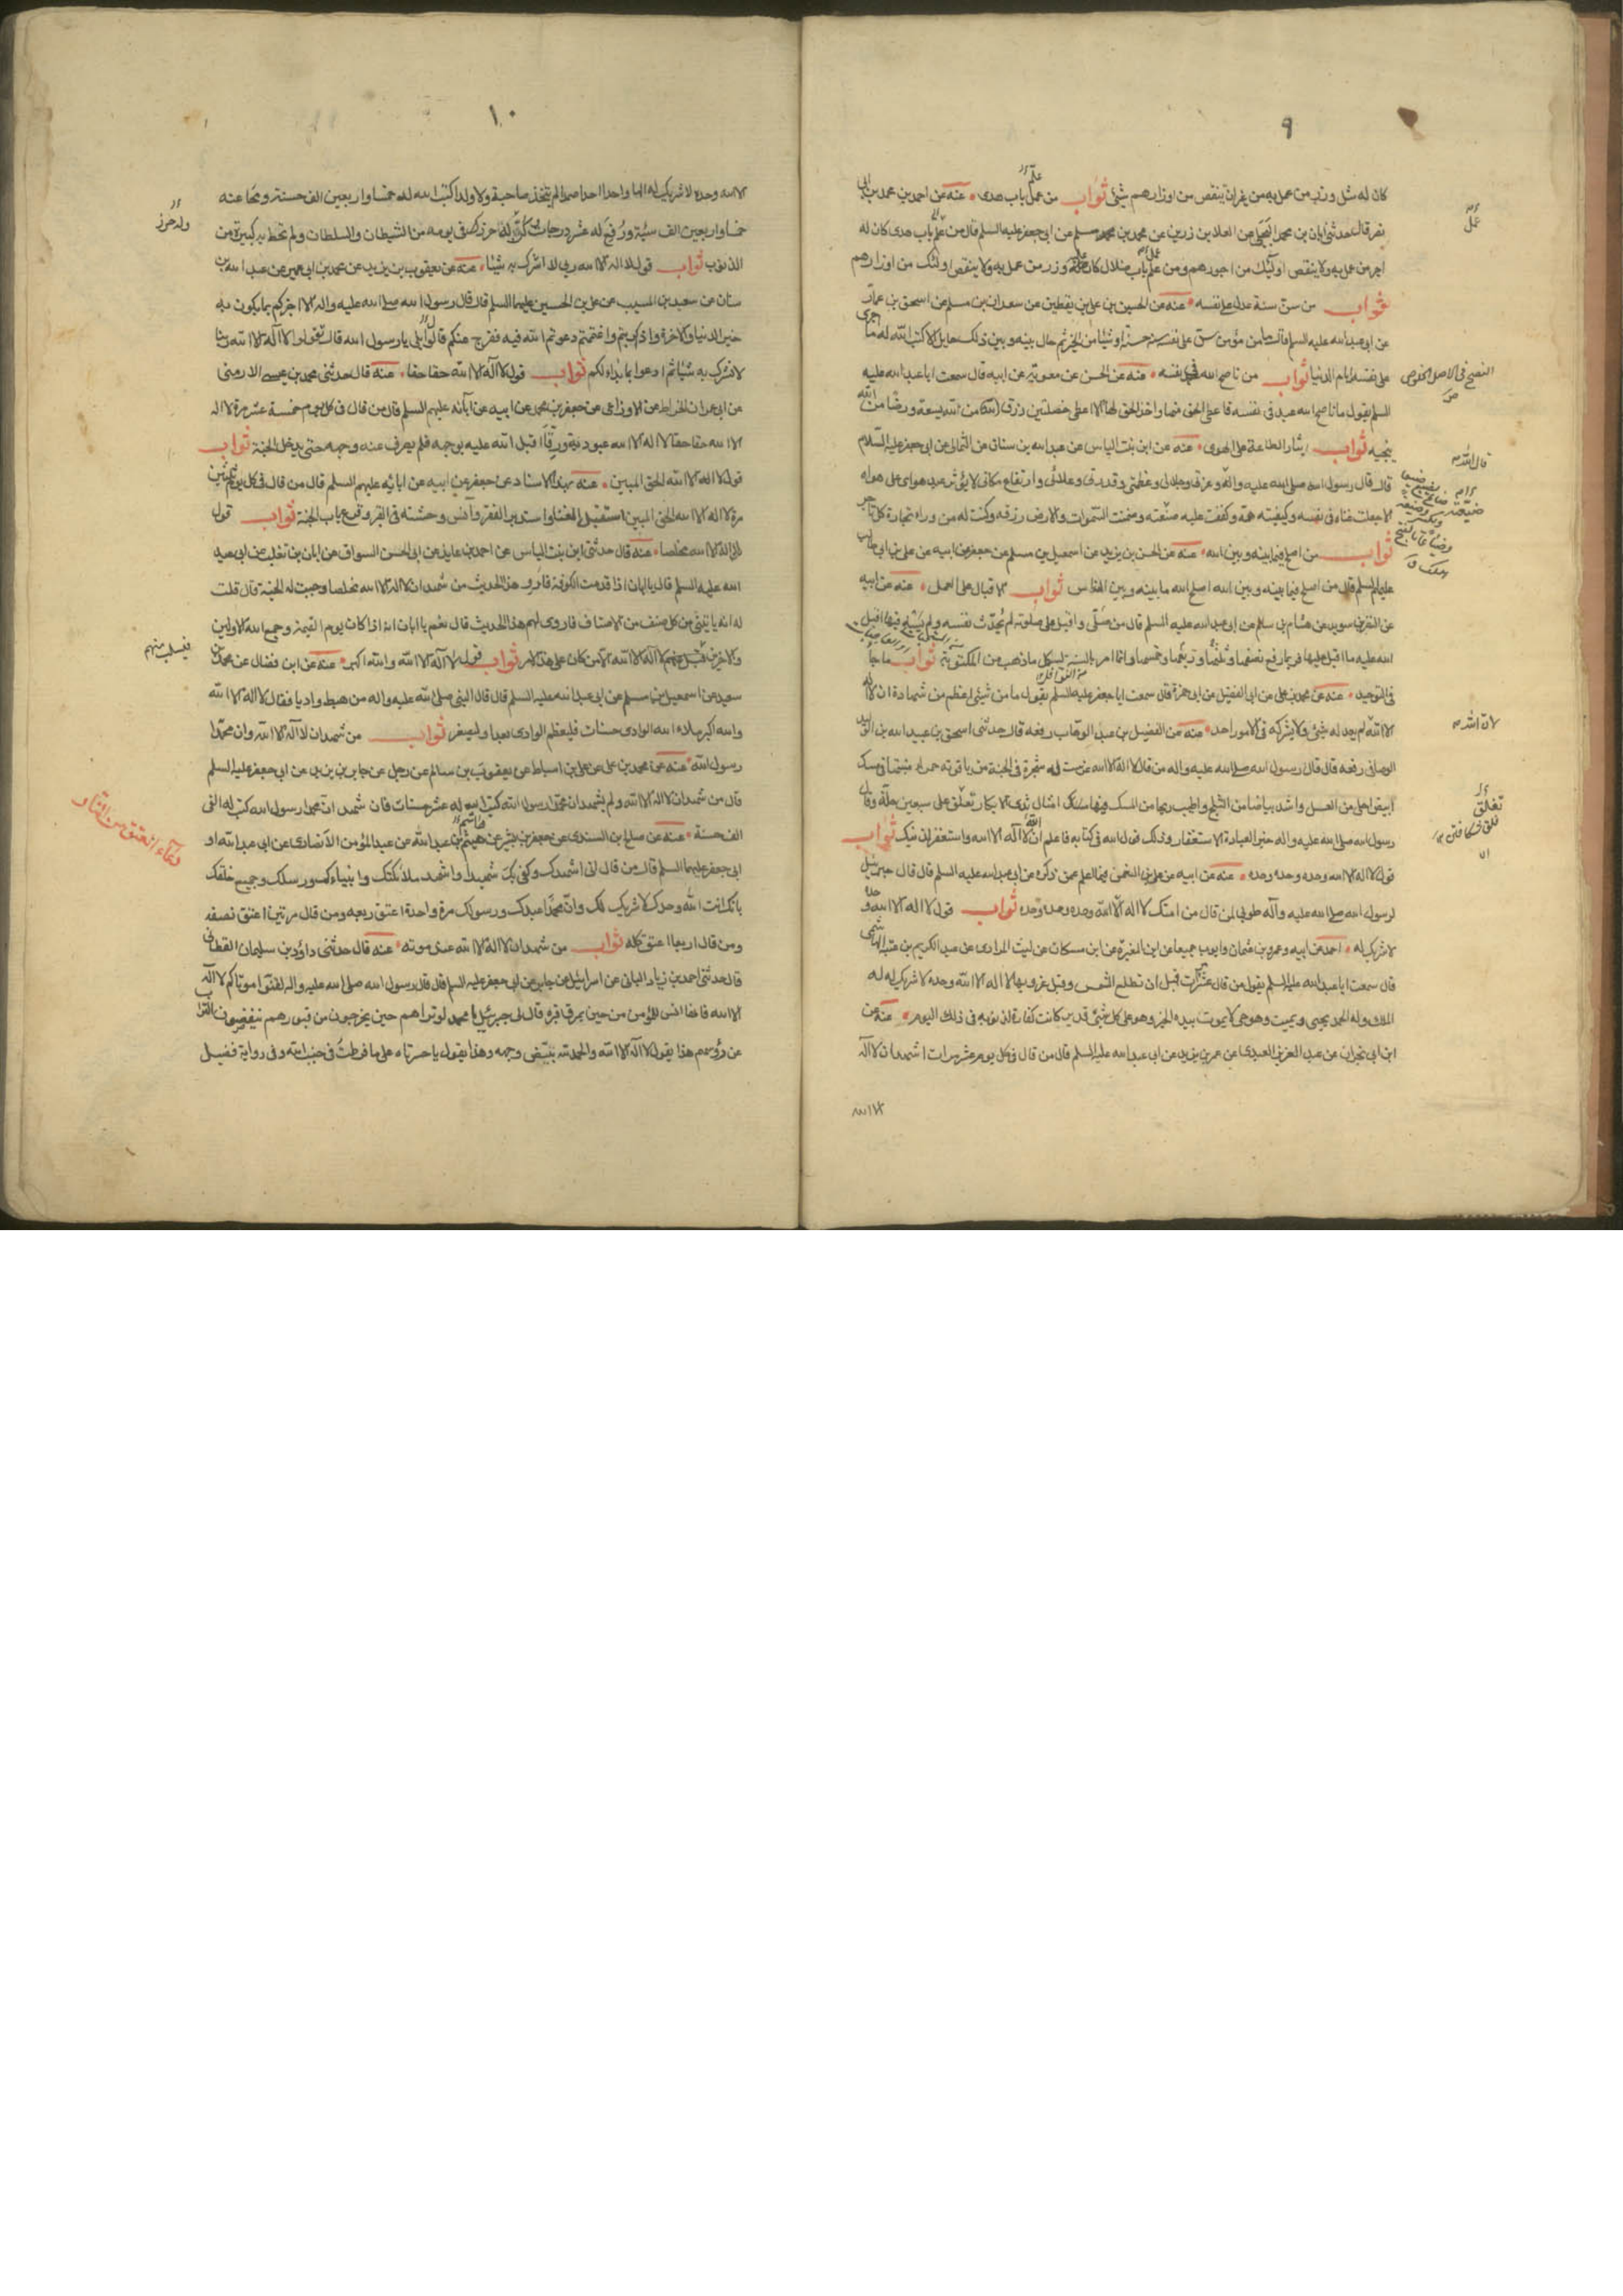 ٩
كان له مثل وزر من عمل به من غير ان ينقص من اوزارهم شيئ ثواب من عمل باب هدى عنه عن احمد بن محمد بن ابى
نصر قال حدثنى ابان بن محمد البجلى عن العلا بن رزين عن محمد بن مسلم عن ابى جعفر عليه السلم قال من علم باب هدى كان له
اجر من عمل به ولا ينقص اولئك من اجورهم ومن علم باب ضلال كان عليه وزر من عمل به ولا ينقص اولئك من اوزارهم
ثواب من سن سنة عدل على نفسه عنه عن الحسين بن على بن يقطين عن سعدان بن مسلم عن اسحق بن عمار
عن ابى عبد الله عليه السلم قال ما من مؤمن سن على نفسه سنة حسنة او شيئا من الخير ثم حال بينه وبين ذلك حايل الا كتب الله له ما اجرى
على نفسه ايام الدنيا ثواب من ناصح الله فى نفسه عنه عن الحسن عن معوية عن ابيه قال سمعت ابا عبد الله عليه
السلم يقول ما ناصح الله عبد فى نفسه فاعطى الحق منها واخذ الحق لها الا اعطى خصلتين رزق من الله يسعه ورضا من الله
ينجيه ثواب ايثار الطاعة على الهوى عنه عن ابن بنت الياس عن عبد الله بن سنان عن الثمالى عن ابى جعفر عليه السلام
قال قال رسول الله صلى الله عليه واله وعزتى وجلالى وعظمتى وقدرتى وعلائى وارتفاع مكانى لا يؤثر عبد هواى على هواه
الا جعلت غناه فى نفسه وكفيته همه وكففت عليه ضيعته وضمنت السموات والارض رزقه وكنت له من وراء تجارة كل تاجر
ثواب من اصلح فيما بينه وبين الله عنه عن الحسن بن يزيد عن اسمعيل بن مسلم عن جعفر عن ابيه عن على بن ابى طالب
عليه السلم قال من اصلح فيما بينه وبين الله اصلح الله ما بينه وبين الناس ثواب الاقبال على العمل عنه عن ابيه
عن النضر بن سويد عن هشام بن سالم عن ابى عبد الله عليه السلم قال من صلى واقبل على صلوته لم يحدث نفسه ولم يسه فيها اقبل
الله عليه ما اقبل عليها فربما رفع نصفها وثلثها وربعها وخمسها وانما امر بالسنة ليكمل ما ذهب من المكتوبة ثواب ما جاء
فى التوحيد عنه عن محمد بن على عن ابى الفضيل عن ابى حمزة قال سمعت ابا جعفر عليه السلم يقول ما من شيئ اعظم من شهادة ان لا اله
الا الله لم يعدله شيئ ولا يشركه فى الامور احد عنه عن الفضيل بن عبد الوهاب رفعه قال حدثنى اسحق بن عبيد الله بن الوليد
الوصافى رفعه قال قال رسول الله صلى الله عليه واله من قال لا اله الا الله غرست له شجرة فى الجنة من ياقوتة حمراء منبتها فى مسك
ابيض احلى من العسل واشد بياضا من الثلج واطيب ريحا من المسك فيها امثال ثدى الابكار تعلق على سبعين حلة وقال
رسول الله صلى الله عليه واله خير العبادة الاستغفار وذلك قول الله فى كتابه فاعلم انه لا اله الا الله واستغفر لذنبك ثواب
قول لا اله الا الله وحده وحده وحده عنه عن ابيه عن على بن النعمن فيما اعلم عمن ذكره عن ابى عبد الله عليه السلم قال قال جبرئيل
لرسول الله صلى الله عليه وآله طوبى لمن قال من امتك لا اله الا الله وحده وحده وحده ثواب قول لا اله الا الله وحده
لا شريك له احمد عن ابيه وعمرو بن عثمان وايوب جميعا عن ابن المغيرة عن ابن مسكان عن ليث المرادى عن عبد الكريم بن عتبة الهاشمى
قال سمعت ابا عبد الله عليه السلم يقول من قال عشر مرات قبل ان تطلع الشمس وقبل غروبها لا اله الا الله وحده لا شريك له له
الملك وله الحمد يحيى ويميت وهو حى لا يموت بيده الخير وهو على كل شيئ قدير كانت كفارة لذنوبه فى ذلك اليوم عنه عن
ابن ابى نجران عن عبد العزيز العبدى عن عمر بن يزيد عن ابى عبد الله عليه السلم قال من قال فى كل يوم عشر مرات اشهد ان لا اله
الا الله
عمل
النصح فى الاصل الخلوص
قال الله
لان الله
تعلق
١٠
الا الله وحده لا شريك له الها واحدا احدا صمدا لم يتخذ صاحبة ولا ولدا كتب الله له خمسا واربعين الف حسنة ومحا عنه
خمسا واربعين الف سيئة ورفع له عشر درجات وكن له حرزا فى يومه من الشيطان والسلطان ولم تحط به كبيرة من
الذنوب ثواب قول لا اله الا الله ربى لا اشرك به شيئا عنه عن يعقوب بن يزيد عن محمد بن ابى عمير عن عبد الله بن
سنان عن سعيد بن المسيب عن على بن الحسين عليهما السلم قال قال رسول الله صلى الله عليه واله الا اخبركم بما يكون به
خير الدنيا والاخرة واذا كربتم واغتممتم دعوتم الله فيه ففرج عنكم قالوا بلى يا رسول الله قال تقولوا لا اله الا الله ربنا
لا نشرك به شيئا ثم ادعوا بما بدا لكم ثواب قول لا اله الا الله حقا حقا عنه قال حدثنى محمد بن عيسى الارمنى
عن ابى عمران الخراط عن الاوزاعى عن جعفر بن محمد عن ابيه عن آبائه عليهم السلم قال من قال فى كل يوم خمسة عشر مرة لا اله
الا الله حقا حقا لا اله الا الله عبودية ورقا اقبل الله عليه بوجهه فلم يصرف عنه وجهه حتى يدخل الجنة ثواب
قول لا اله الا الله الحق المبين عنه بهذا الاسناد عن جعفر عن ابيه عن ابائه عليهم السلم قال من قال فى كل يوم ثلثين
مرة لا اله الا الله الحق المبين استقبل الغنا واستدبر الفقر وآنس وحشته فى القبر وقرع باب الجنة ثواب قول
لا اله الا الله مخلصا عنه قال حدثنى ابن بنت الياس عن احمد بن عايذ عن ابى الحسن السواق عن ابان بن تغلب عن ابى عبد
الله عليه السلم قال يا ابان اذا قدمت الكوفة فارو هذا الحديث من شهد ان لا اله الا الله مخلصا وجبت له الجنة قال قلت
له انه ياتينى من كل صنف من الاصناف فاروى لهم هذا الحديث قال نعم يا ابان انه اذا كان يوم القيمة وجمع الله الاولين
والاخرين فيسلب منهم لا اله الا الله الا من كان على هذا الامر ثواب قول لا اله الا الله والله اكبر عنه عن ابن فضال عن محمد بن
سعيد عن اسمعيل بن مسلم عن ابى عبد الله عليه السلم قال قال النبى صلى الله عليه واله من هبط واديا فقال لا اله الا الله
والله اكبر ملاء الله الوادى حسنات فليعظم الوادى بعد او ليصغر ثواب من شهد ان لا اله الا الله وان محمدا
رسول الله عنه عن محمد بن على عن على بن اسباط عن يعقوب بن سالم عن رجل عن جابر بن يزيد عن ابى جعفر عليه السلم
قال من شهد ان لا اله الا الله ولم يشهد ان محمدا رسول الله كتب الله له عشر حسنات فان شهد ان محمدا رسول الله كتب له الفى
الف حسنة عنه عن صالح بن السندى عن جعفر بن بشير عن هيثم بن عبد الله عن عبد المؤمن الانصارى عن ابى عبد الله او
ابى جعفر عليهما السلم قال من قال انى اشهدك وكفى بك شهيدا واشهد ملائكتك وانبياءك ورسلك وجميع خلقك
بانك انت الله وحدك لا شريك لك وان محمدا عبدك ورسولك مرة واحدة اعتق ربعه ومن قال مرتين اعتق نصفه
ومن قال اربعا اعتق كله ثواب من شهد ان لا اله الا الله عند موته عنه قال حدثنى داود بن سليمان القطان
قال حدثنى احمد بن زياد اليمانى عن اسرائيل عن جابر عن ابى جعفر عليه السلم قال قال رسول الله صلى الله عليه واله لقنوا موتاكم لا اله
الا الله فانها انس للمؤمن من حين يمرق قبره قال لى جبرئيل يا محمد لو تراهم حين يخرجون من قبورهم ينفضون التراب
عن رؤسهم هذا يقول لا اله الا الله والحمد لله يبيض وجهه وهذا يقول يا حسرتاه على ما فرطت فى جنب الله وفى رواية فضيل
فيسلب منهم
دعاء العتق من النار